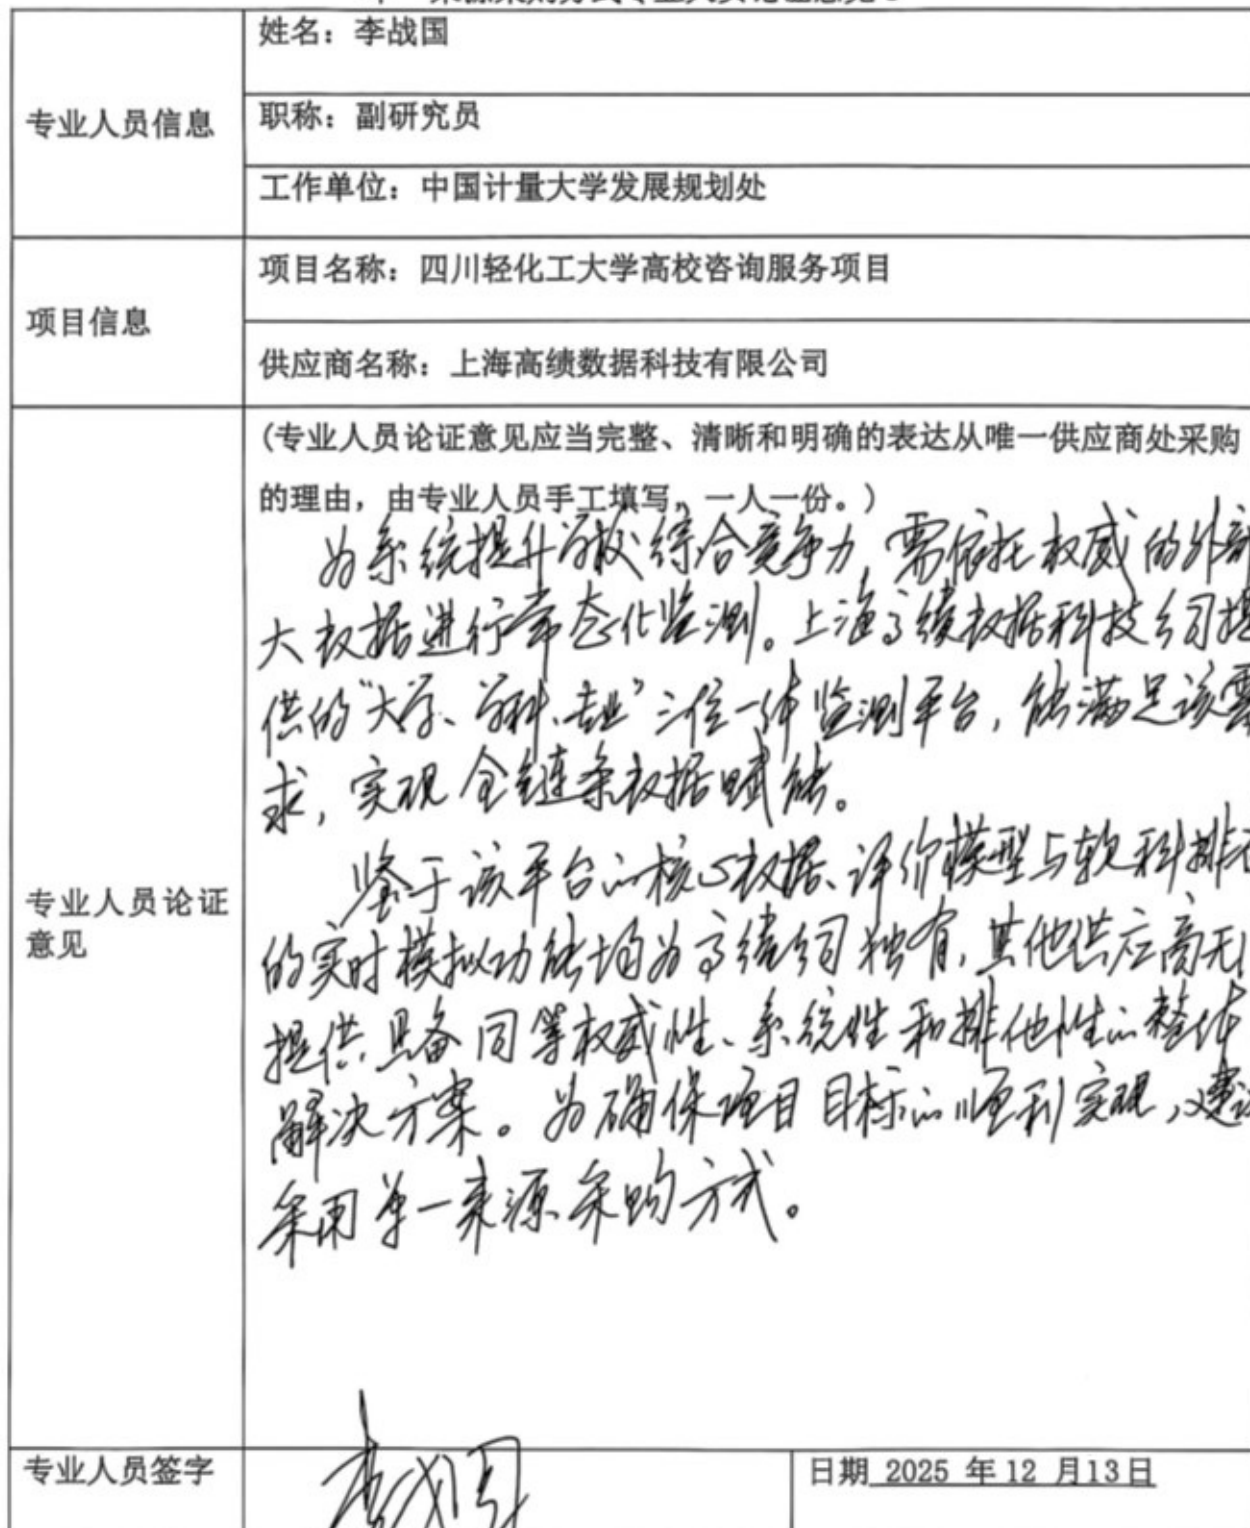 姓名：李战国
专业人员信息
职称：副研究员
工作单位：中国计量大学发展规划处
项目名称：四川轻化工大学高校咨询服务项目
项目信息
供应商名称：上海高绩数据科技有限公司
(专业人员论证意见应当完整、清晰和明确的表达从唯一供应商处采购
的理由，由专业人员手工填写，一人一份。)
为系统提升学校综合竞争力，需依托权威的外部
大数据进行常态化监测。上海高绩数据科技公司提
供的“大学、学科、专业”三位一体监测平台，能满足该需
求，实现全链条数据赋能。
鉴于该平台的核心数据、评价模型与软科排
的实时模拟功能均为高绩公司独有，其他供应商无
提供具备同等权威性、系统性和排他性的整体
解决方案。为确保项目目标的顺利实现，建议
采用单一来源采购方式。
专业人员论证
意见
专业人员签字
李战国
日期 2025 年 12 月13日